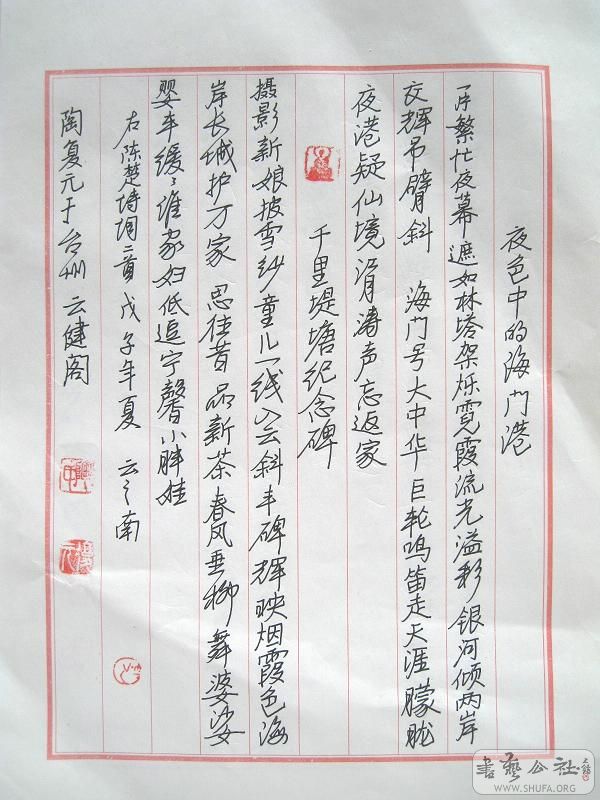 夜色中的海门港
一片繁忙夜幕遮如林塔架烁霓霞流光溢彩银河倾两岸
交辉吊臂斜 海门号大中华巨轮鸣笛走天涯朦胧
夜港疑仙境 涛声忘返家
千里堤塘纪念碑
摄影新娘披雪纱童儿一线入云斜丰碑辉映烟霞色海
岸长城护万家 思往昔品新茶春风垂柳舞婆娑
婴车缓々谁家妇低逗宁馨小胖娃
右陈楚诗词二首戊子年夏 云之南
陶复元于台州云健阁
书艺公社
WWW.SHUFA.ORG